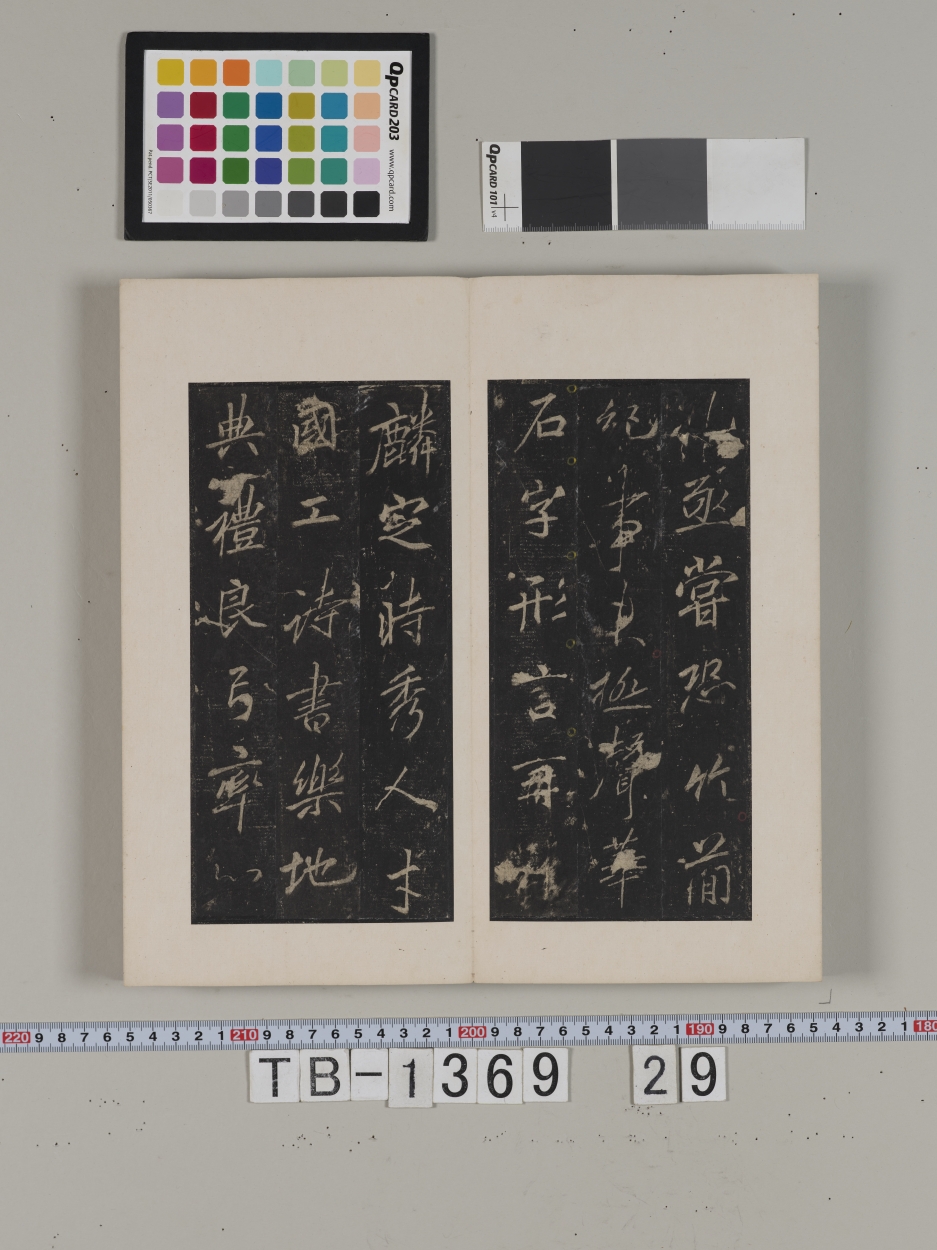 烝嘗恐竹簡
紀事未極聲華
石字形言再
麟定時秀人才
國工詩書樂地
典禮良弓率心
QpCARD 203 www.qpcard.com
QpCARD 101 v4
220 9 8 7 6 5 4 3 2 1 210 9 8 7 6 5 4 3 2 1 200 9 8 7 6 5 4 3 2 1 190 9 8 7 6 5 4 3 2 1 180
TB-1369 29